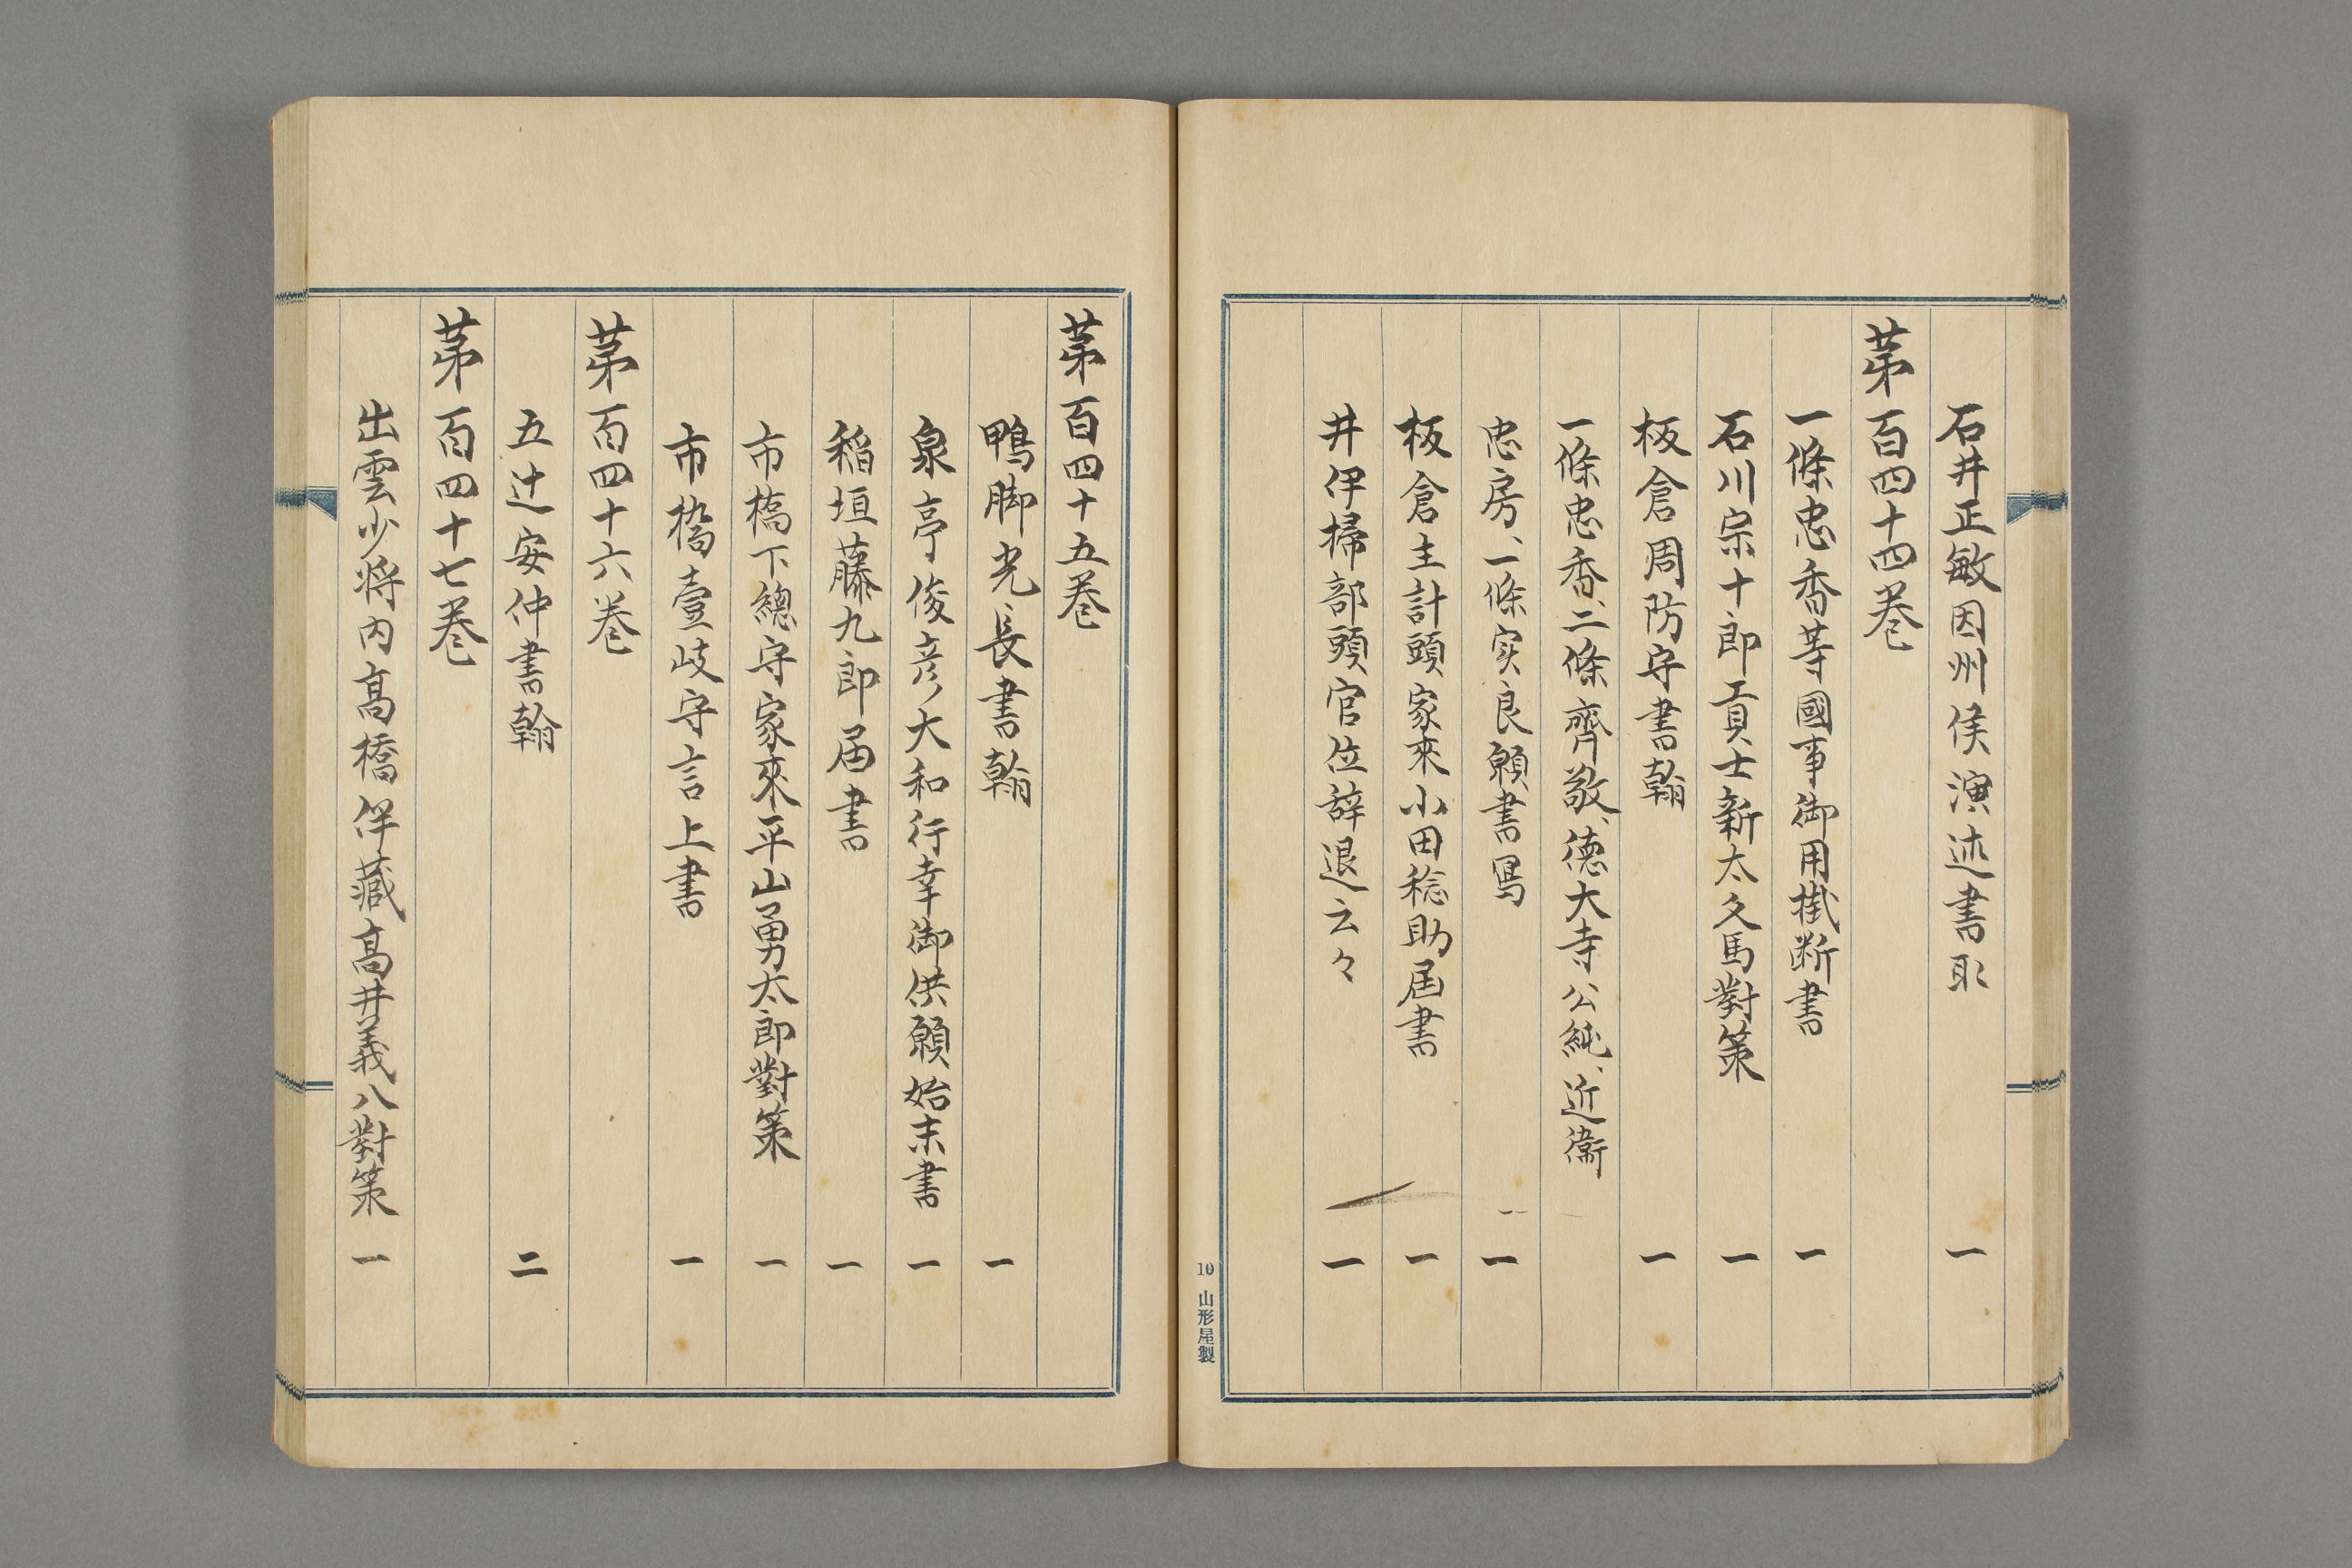 石井正敏因州侯演述書取 一
第百四十四巻
一條忠香等國事御用掛断書 一
石川宗十郎貢士新太久馬對策 一
板倉周防守書翰 一
一條忠香、二條齊敬、德大寺公純、近衞
忠房、一條实良願書寫 一
板倉主計頭家來小田稔助届書 一
井伊掃部頭官位辞退云々 一
10 山形屋製
第百四十五巻
鴨脚光長書翰 一
泉亭俊彦大和行幸御供願始末書 一
稲垣藤九郎届書 一
市橋下總守家來平山勇太郎對策 一
市橋壹岐守言上書 一
第百四十六巻
五辻安仲書翰 二
第百四十七巻
出雲少将内高橋伴藏高井義八對策 一